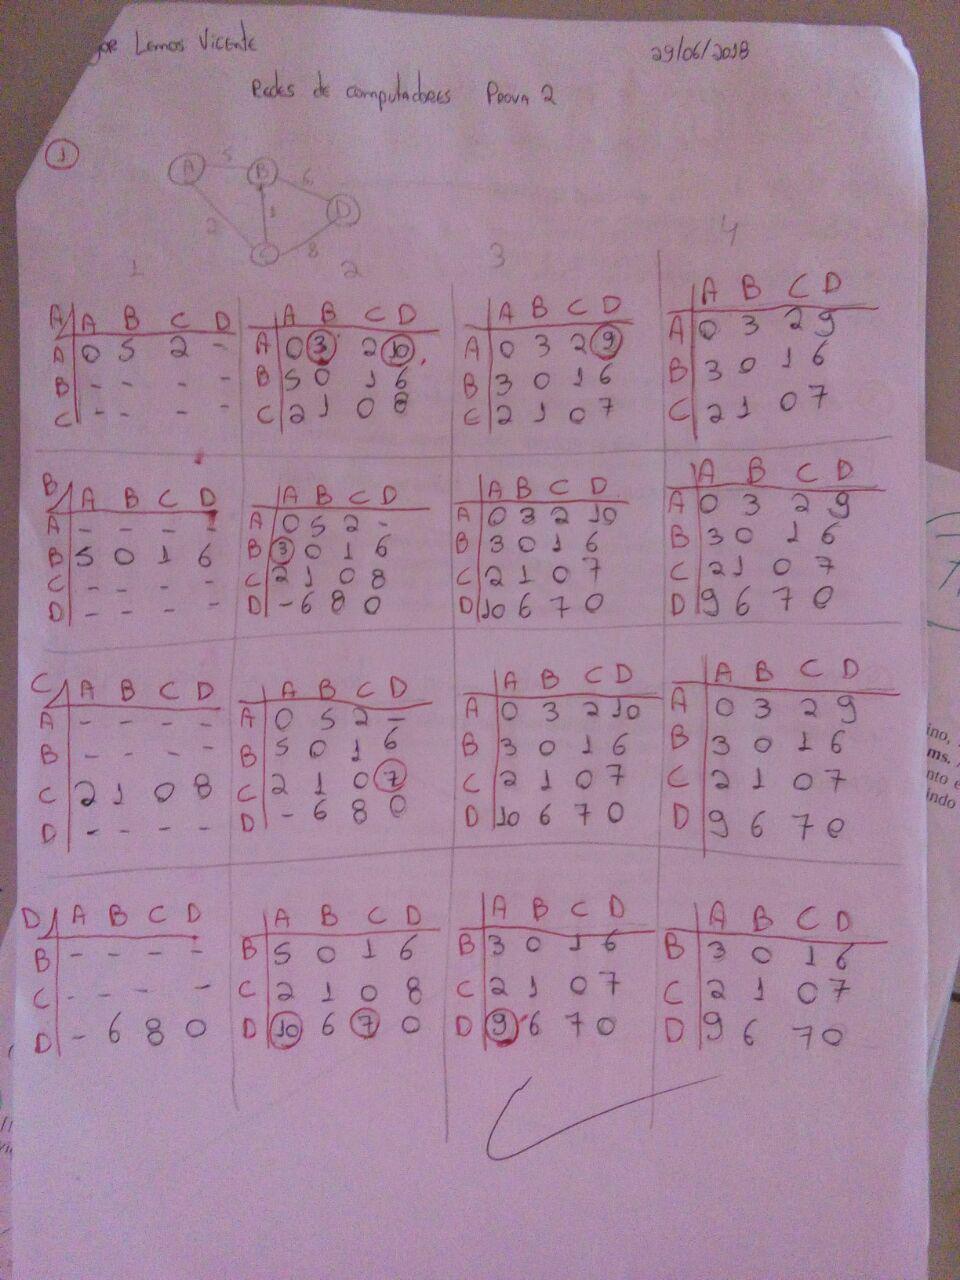 Lemos Vicente
29/06/2018
Redes de computadores Prova 2
1
A 5 B 6
D
2 1
C 8
1 2 3 4
A A B C D
A 0 5 2 -
B - - - -
C - - - -
A B C D
A 0 3 2 10
B 5 0 1 6
C 2 1 0 8
A B C D
A 0 3 2 9
B 3 0 1 6
C 2 1 0 7
A B C D
A 0 3 2 9
B 3 0 1 6
C 2 1 0 7
B A B C D
A - - - -
B 5 0 1 6
C - - - -
D - - - -
A B C D
A 0 5 2 -
B 3 0 1 6
C 2 1 0 8
D - 6 8 0
A B C D
A 0 3 2 10
B 3 0 1 6
C 2 1 0 7
D 10 6 7 0
A B C D
A 0 3 2 9
B 3 0 1 6
C 2 1 0 7
D 9 6 7 0
C A B C D
A - - - -
B - - - -
C 2 1 0 8
D - - - -
A B C D
A 0 5 2 -
B 5 0 1 6
C 2 1 0 7
D - 6 8 0
A B C D
A 0 3 2 10
B 3 0 1 6
C 2 1 0 7
D 10 6 7 0
A B C D
A 0 3 2 9
B 3 0 1 6
C 2 1 0 7
D 9 6 7 0
D A B C D
B - - - -
C - - - -
D - 6 8 0
A B C D
B 5 0 1 6
C 2 1 0 8
D 10 6 7 0
A B C D
B 3 0 1 6
C 2 1 0 7
D 9 6 7 0
A B C D
B 3 0 1 6
C 2 1 0 7
D 9 6 7 0
ino,
ms.
nto e
indo